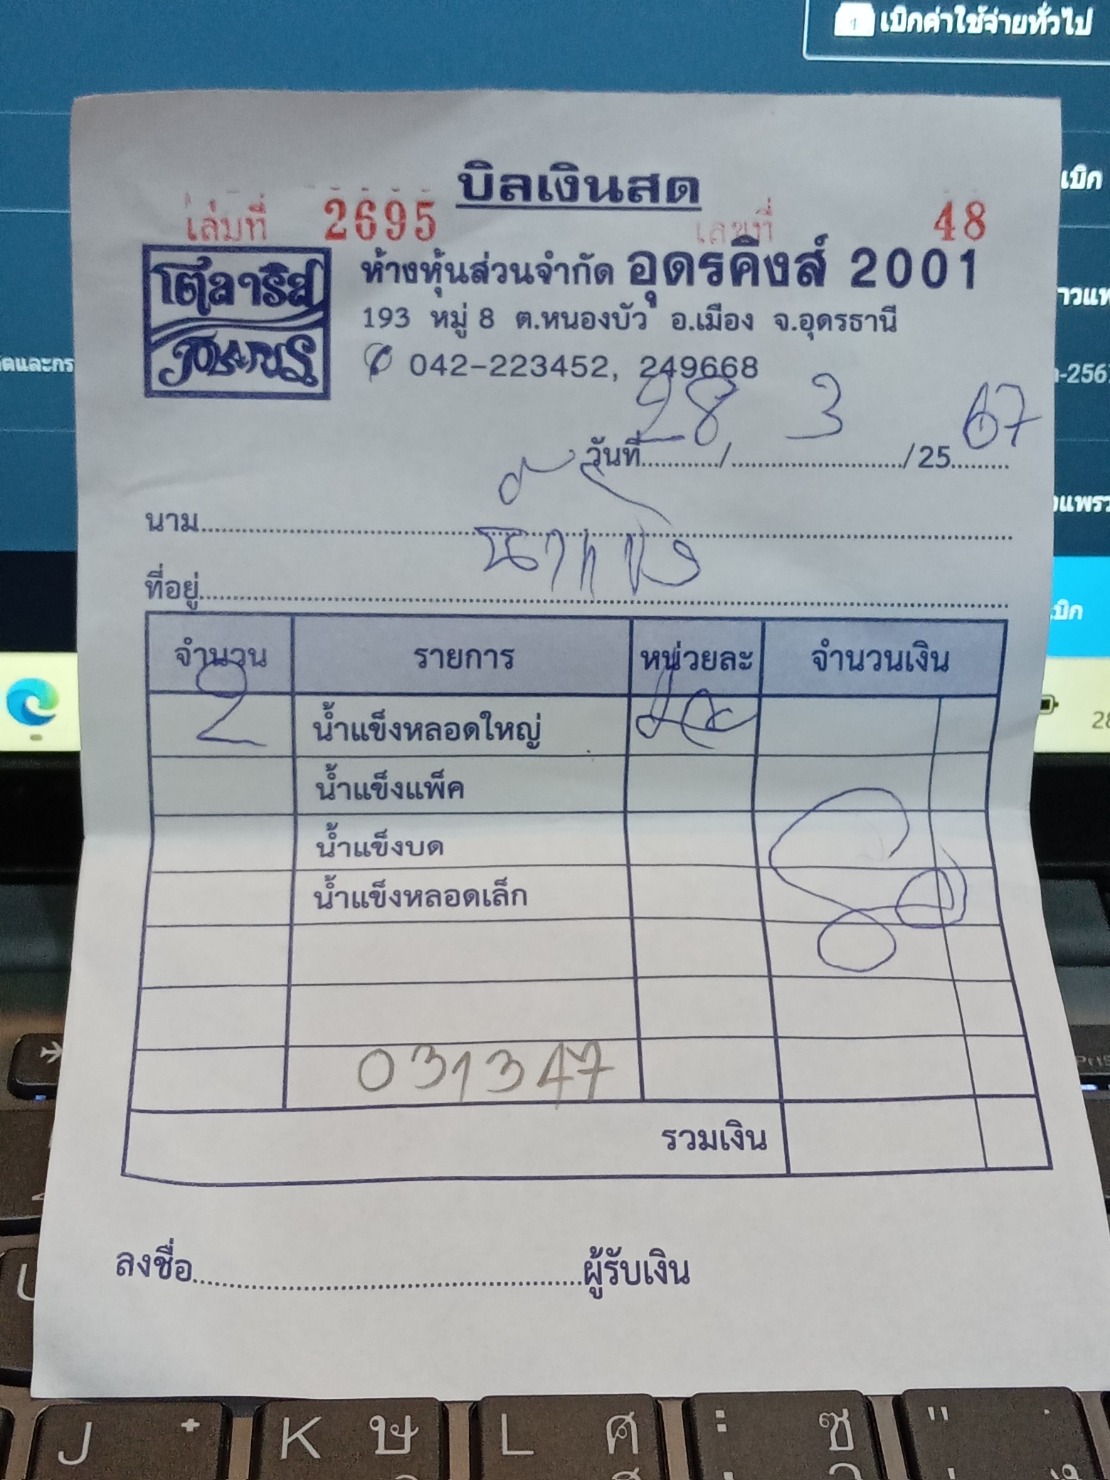 เบิกค่าใช้จ่ายทั่วไป
เบิก
บิลเงินสด
เล่มที่ 2695 เลขที่ 48
โตลาริส
POLARIS
ห้างหุ้นส่วนจำกัด อุดรคิงส์ 2001
193 หมู่ 8 ต.หนองบัว อ.เมือง จ.อุดรธานี
042-223452, 249668
วันที่ 28 / 3 /25 67
นาม
ที่อยู่
จำนวน รายการ หน่วยละ จำนวนเงิน
2 น้ำแข็งหลอดใหญ่ 40
น้ำแข็งแพ็ค
น้ำแข็งบด
น้ำแข็งหลอดเล็ก
80
031347
รวมเงิน
ลงชื่อ ผู้รับเงิน
J K ษ L ศ : ซ "